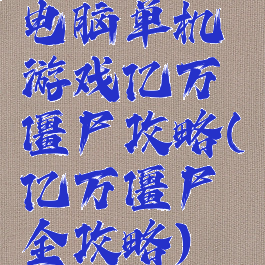 电脑单机
游戏亿万
僵尸攻略(
亿万僵尸
全攻略)